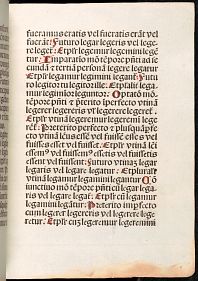 fueramus eratis vel fueratis erāt vel
fuerāt. Futuro legar legeris vel lege-
re leget. Etpsr legemur legemini legē
tur. Inparatio mō tēpore pñti ad se
cundā et tertiā personā legere legatur
Etpsr legamur legimini legant. Futu
ro legitor tu legitor ille. Etpsr lega
mur legiminor leguntor. Optato mō
tēpore pñti et pterito īperfecto vtinā
legerer legereris vel legerere legeret.
Etpsr vtinā legeremur legeremini lege
rēt. Preterito perfecto et plusquāpfe
cto vtinā lcūs essē vel fuissē esses vel
fuisses esset vel fuisset. Etpsr vtinā lcī
essemꝰ vel fuissemꝰ essetis vel fuissetis
essent vel fuissent. Futuro vtinā legar
legaris vel legare legatur. Etplurasr
vtinā legamur legamini legantur. Cō
iunctiuo mō tēpore pñti cū legar lega
ris vel legare legatur. Etpsr cū legamur
legamini legātur. Preterito imperfecto
cum legerer legereris vel legerere lege
retur. Etpsr cū legeremur legeremini